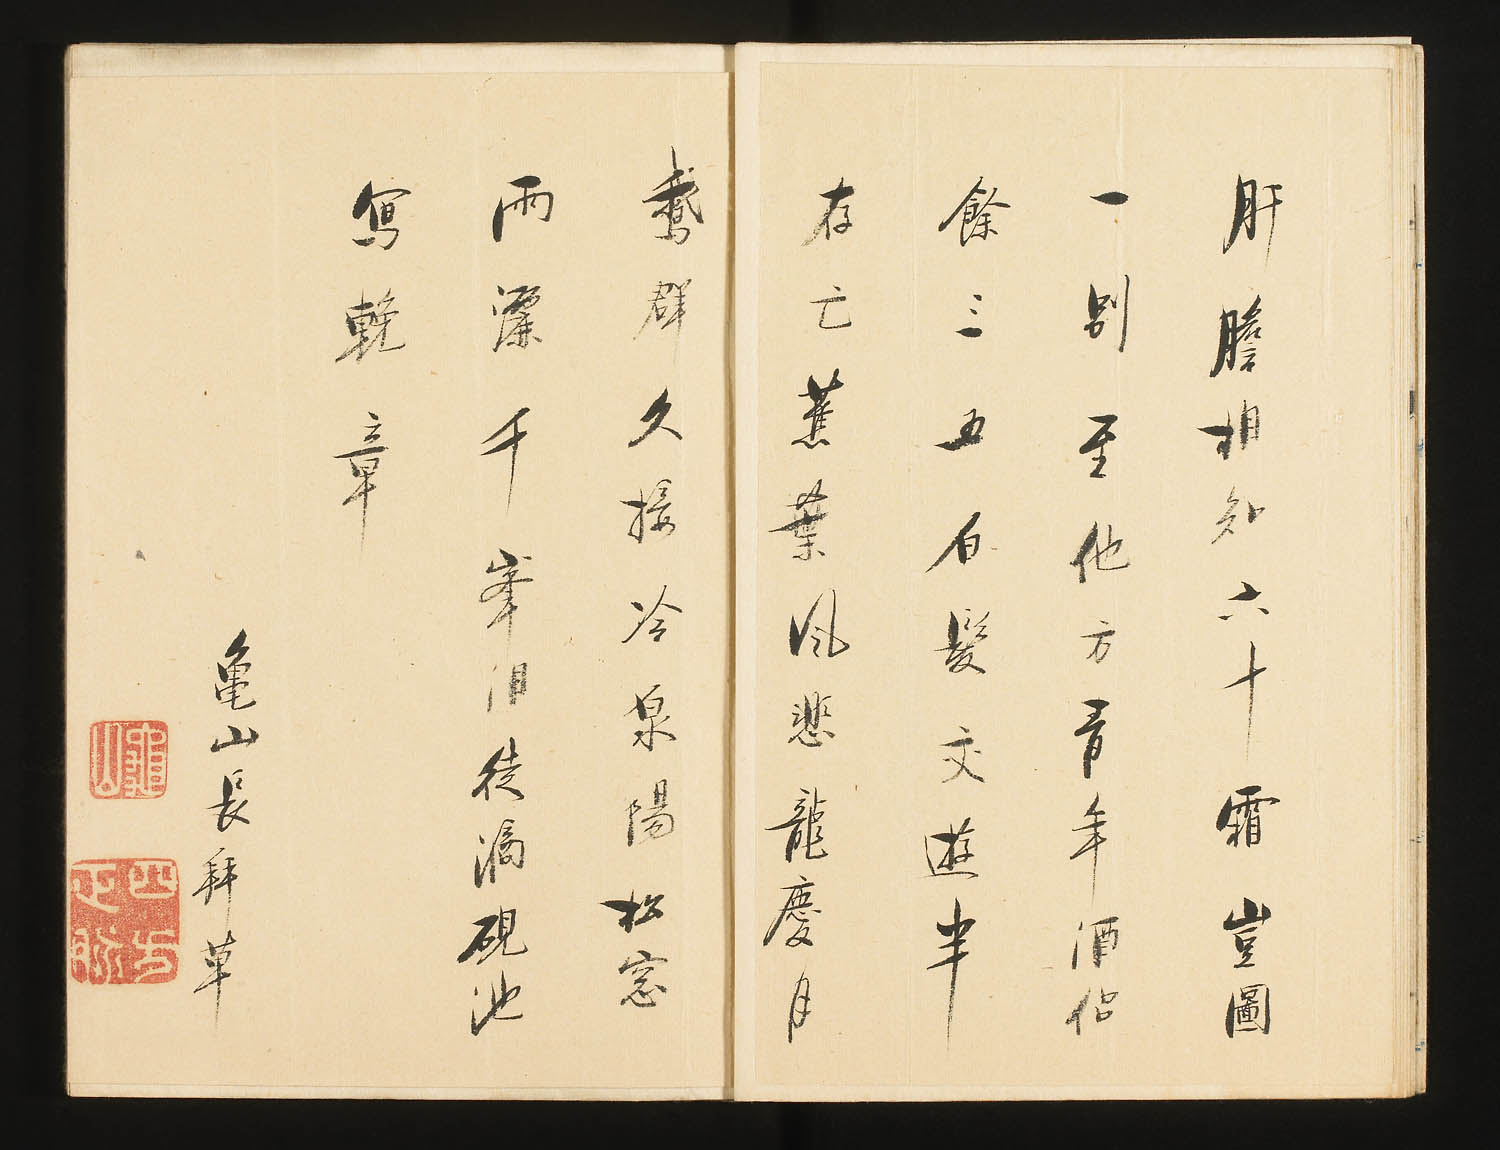 肝膽相知六十霜豈圖
一別至他方青年酒侶
餘三五白髮交遊半
存亡蕉葉風悲龍慶月
鵞群久接冷泉陽松窓
雨灑千峯泪徒滴硯池
寫輓章
亀山長拜草